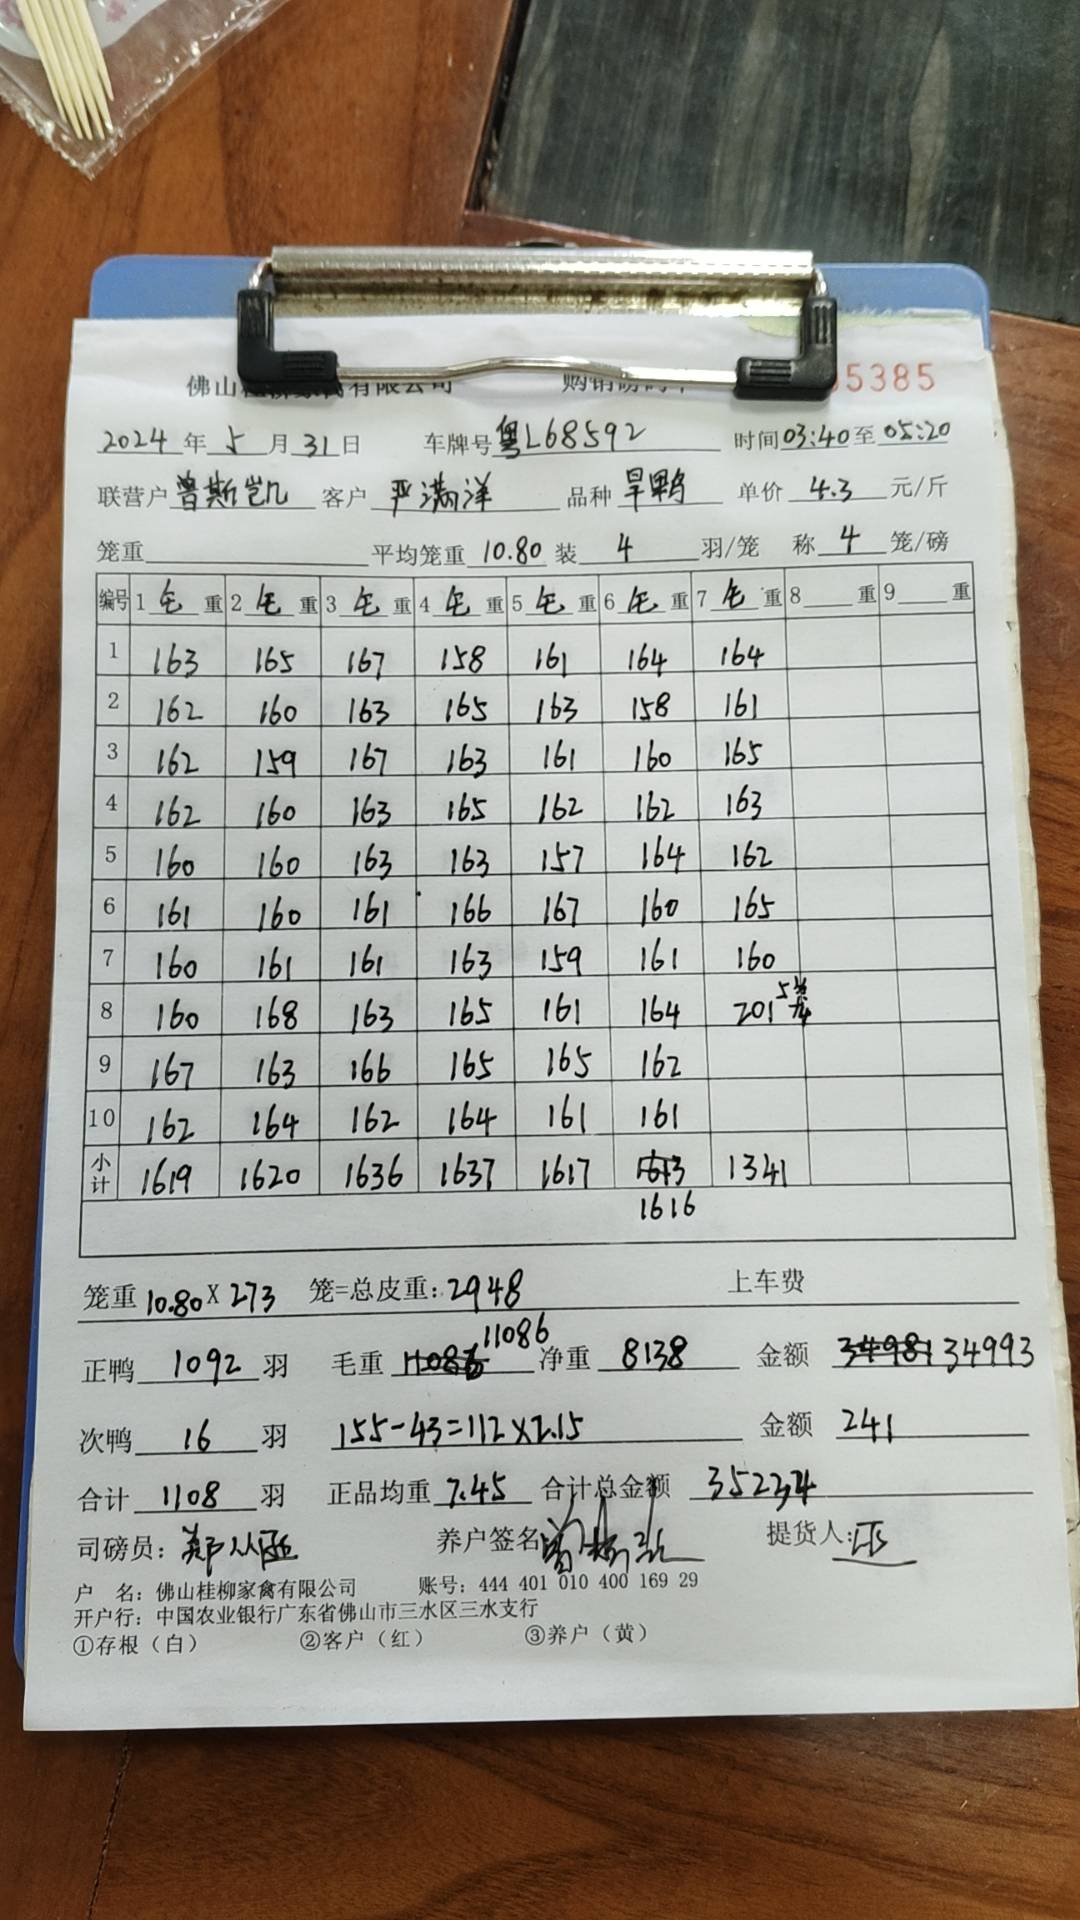 佛山桂柳家禽有限公司 购销磅码单 05385
2024 年 5 月 31 日 车牌号 粤L68592 时间 03:40 至 05:20
联营户 曾斯凯 客户 严满洋 品种 旱鸭 单价 4.3 元/斤
笼重 平均笼重 10.80 装 4 羽/笼 称 4 笼/磅
编号 1 毛 重 2 毛 重 3 毛 重 4 毛 重 5 毛 重 6 毛 重 7 毛 重 8 重 9 重
1 163 165 167 158 161 164 164
2 162 160 163 165 163 158 161
3 162 159 167 163 161 160 165
4 162 160 163 165 162 162 163
5 160 160 163 163 157 164 162
6 161 160 161 166 167 160 165
7 160 161 161 163 159 161 160
8 160 168 163 165 161 164 201 5笼
9 167 163 166 165 165 162
10 162 164 162 164 161 161
小计 1619 1620 1636 1637 1617 1613 1341
1616
笼重 10.80 X 273 笼=总皮重: 2948 上车费
正鸭 1092 羽 毛重 11086 净重 8138 金额 34981 34993
次鸭 16 羽 155-43=112X2.15 金额 241
合计 1108 羽 正品均重 7.45 合计总金额 35234
司磅员: 养户签名 提货人:
户 名: 佛山桂柳家禽有限公司 账号: 444 401 010 400 169 29
开户行: 中国农业银行广东省佛山市三水区三水支行
①存根（白） ②客户（红） ③养户（黄）